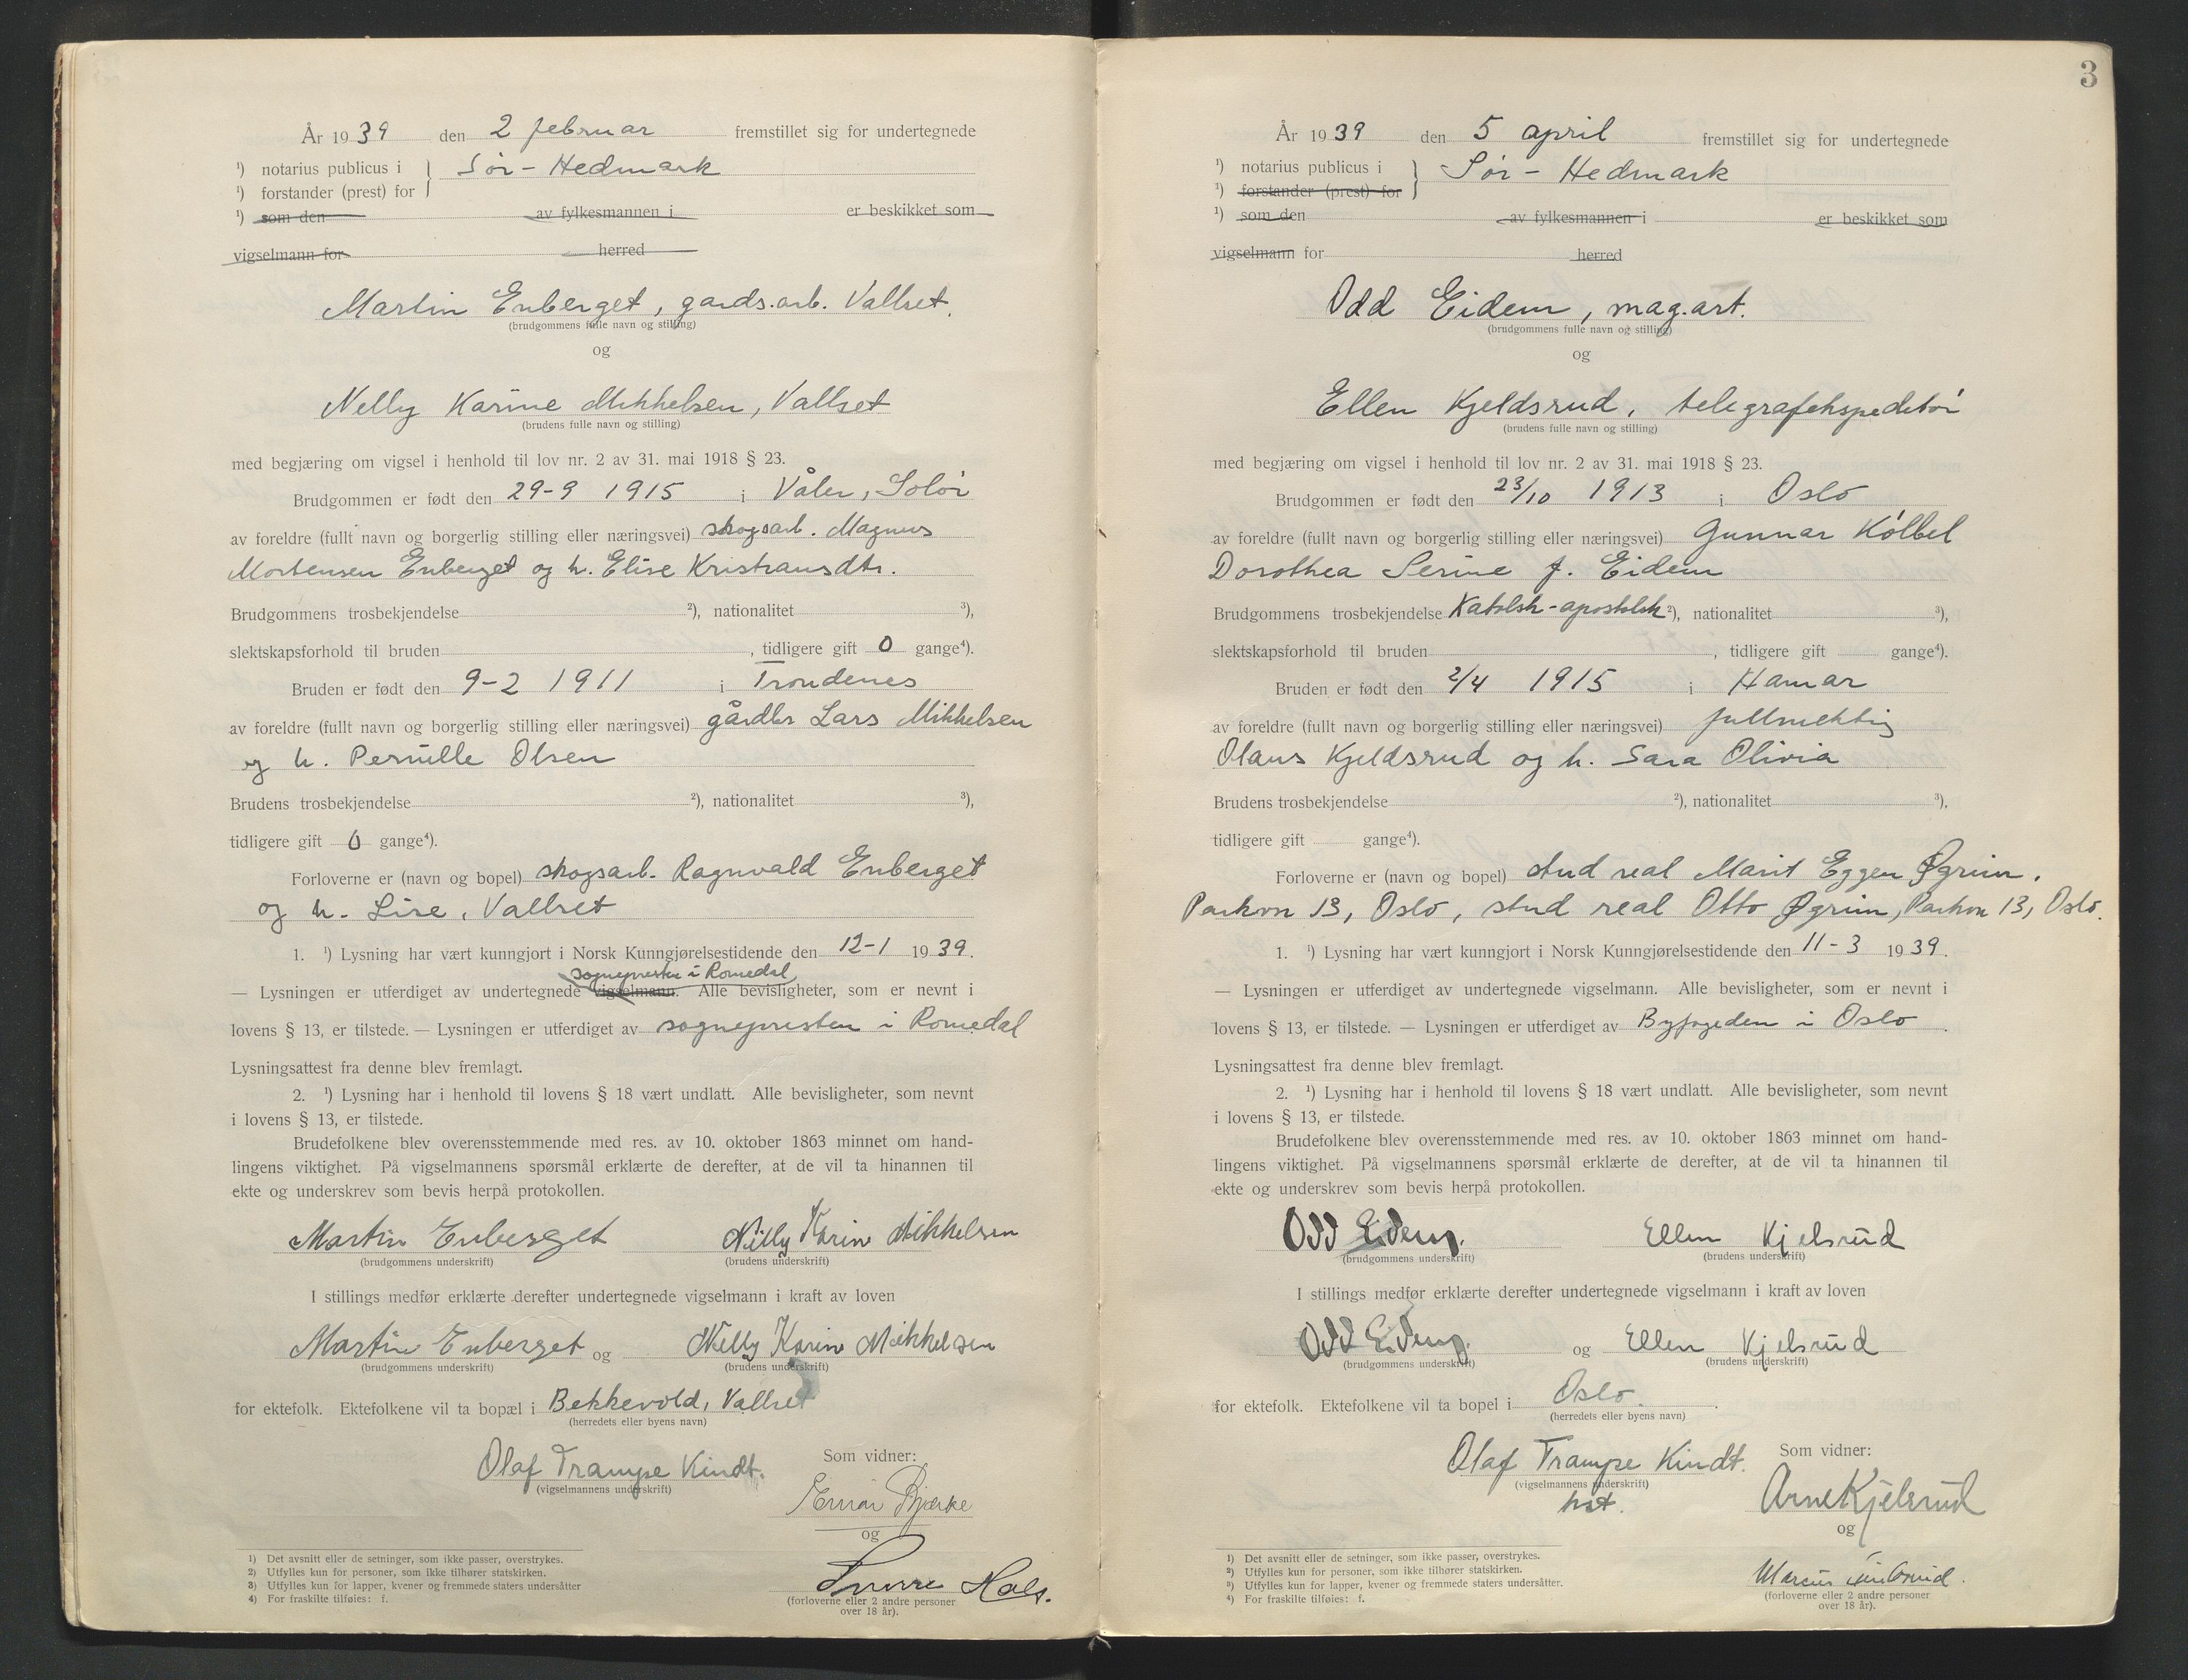 År 1939 den 2 februar fremstillet sig for undertegnede
¹) notarius publicus i } Sør-Hedmark
¹) forstander (prest) for
¹) som den av fylkesmannen i er beskikket som
vigselmann for herred
Martin Enberget, gards.arb. Vallset.
(brudgommens fulle navn og stilling)
og
Nelly Karine Mikkelsen, Vallset
(brudens fulle navn og stilling)
med begjæring om vigsel i henhold til lov nr. 2 av 31. mai 1918 § 23.
Brudgommen er født den 29-9 1915 i Våler, Solør
av foreldre (fullt navn og borgerlig stilling eller næringsvei) skogsarb. Magnus
Mortensen Enberget og h. Elise Kristiansdtr.
Brudgommens trosbekjendelse ²), nationalitet ³),
slektskapsforhold til bruden , tidligere gift 0 gange⁴).
Bruden er født den 9-2 1911 i Trondenes
av foreldre (fullt navn og borgerlig stilling eller næringsvei) gårdbr Lars Mikkelsen
og h. Pernille Olsen
Brudens trosbekjendelse ²), nationalitet ³),
tidligere gift 0 gange⁴).
Forloverne er (navn og bopel) skogsarb. Ragnvald Enberget
og h. Lise, Vallset
1. ¹) Lysning har vært kunngjort i Norsk Kunngjørelsestidende den 12-1 1939.
sognepresten i Romedal
— Lysningen er utferdiget av undertegnede vigselmann. Alle bevisligheter, som er nevnt i
lovens § 13, er tilstede. — Lysningen er utferdiget av sognepresten i Romedal
Lysningsattest fra denne blev fremlagt.
2. ¹) Lysning har i henhold til lovens § 18 vært undlatt. Alle bevisligheter, som nevnt
i lovens § 13, er tilstede.
Brudefolkene blev overensstemmende med res. av 10. oktober 1863 minnet om hand-
lingens viktighet. På vigselmannens spørsmål erklærte de derefter, at de vil ta hinannen til
ekte og underskrev som bevis herpå protokollen.
Martin Enberget Nelly Karin Mikkelsen
(brudgommens underskrift) (brudens underskrift)
I stillings medfør erklærte derefter undertegnede vigselmann i kraft av loven
Martin Enberget og Nelly Karin Mikkelsen
(brudgommens underskrift) (brudens underskrift)
for ektefolk. Ektefolkene vil ta bopæl i Bekkevold, Vallset
(herredets eller byens navn)
Olaf Trampe Kindt.
(vigselmannens underskrift)
Som vidner:
Einar Bjerke
og
Sverre Hals.
(forloverne eller 2 andre personer
over 18 år).
¹) Det avsnitt eller de setninger, som ikke passer, overstrykes.
²) Utfylles kun for personer, som ikke tilhører statskirken.
³) Utfylles kun for lapper, kvener og fremmede staters undersåtter
⁴) For fraskilte tilføies: f.
3
År 1939 den 5 april fremstillet sig for undertegnede
¹) notarius publicus i } Sør-Hedmark
¹) forstander (prest) for
¹) som den av fylkesmannen i er beskikket som
vigselmann for herred
Odd Eidem, mag.art.
(brudgommens fulle navn og stilling)
og
Ellen Kjeldsrud, telegrafekspeditør
(brudens fulle navn og stilling)
med begjæring om vigsel i henhold til lov nr. 2 av 31. mai 1918 § 23.
Brudgommen er født den 23/10 1913 i Oslo
av foreldre (fullt navn og borgerlig stilling eller næringsvei) Gunnar Kølbel
Dorothea Serine f. Eidem
Brudgommens trosbekjendelse Katolsk-apostolsk ²), nationalitet ³),
slektskapsforhold til bruden , tidligere gift gange⁴).
Bruden er født den 2/4 1915 i Hamar
av foreldre (fullt navn og borgerlig stilling eller næringsvei) fullmektig
Olaus Kjeldsrud og h. Sara Olivia
Brudens trosbekjendelse ²), nationalitet ³),
tidligere gift gange⁴).
Forloverne er (navn og bopel) stud real Marit Eggen Øgrim,
Parkvn 13, Oslo, stud real Otto Øgrim, Parkvn 13, Oslo.
1. ¹) Lysning har vært kunngjort i Norsk Kunngjørelsestidende den 11-3 1939.
— Lysningen er utferdiget av undertegnede vigselmann. Alle bevisligheter, som er nevnt i
lovens § 13, er tilstede. — Lysningen er utferdiget av Byfogeden i Oslo.
Lysningsattest fra denne blev fremlagt.
2. ¹) Lysning har i henhold til lovens § 18 vært undlatt. Alle bevisligheter, som nevnt
i lovens § 13, er tilstede.
Brudefolkene blev overensstemmende med res. av 10. oktober 1863 minnet om hand-
lingens viktighet. På vigselmannens spørsmål erklærte de derefter, at de vil ta hinannen til
ekte og underskrev som bevis herpå protokollen.
Odd Eidem. Ellen Kjelsrud
(brudgommens underskrift) (brudens underskrift)
I stillings medfør erklærte derefter undertegnede vigselmann i kraft av loven
Odd Eidem. og Ellen Kjelsrud
(brudgommens underskrift) (brudens underskrift)
for ektefolk. Ektefolkene vil ta bopel i Oslo.
(herredets eller byens navn)
Olaf Trampe Kindt.
(vigselmannens underskrift)
Som vidner:
Arne Kjelsrud
og
Marcus
(forloverne eller 2 andre personer
over 18 år).
¹) Det avsnitt eller de setninger, som ikke passer, overstrykes.
²) Utfylles kun for personer, som ikke tilhører statskirken.
³) Utfylles kun for lapper, kvener og fremmede staters undersåtter.
⁴) For fraskilte tilføies: f.